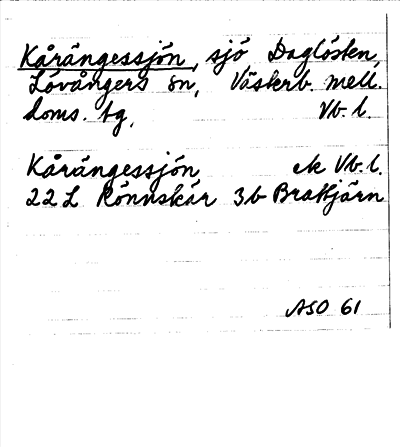 Kårängessjön, sjö Daglösten,
Lövångers sn, Västerb. mell.
doms. tg. Vb. l.
Kårängessjön ek Vb. l.
22 L Rönnskär 3b Braktjärn
ASO 61